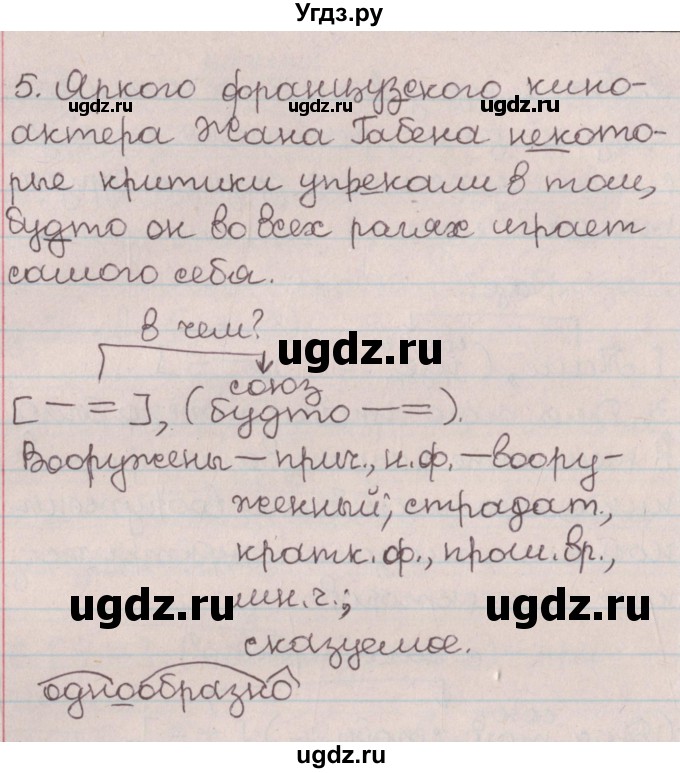 Угдз.ру
5. Яркого французского кино-
актера Жана Габена некото-
рые критики упрекали в том,
будто он во всех ролях играет
самого себя.
в чем?
союз
[ — = ], ( будто — = ).
Вооружены — прич., н.ф. — воору-
женный; страдат.,
кратк. ф., прош. вр.,
мн. ч.;
сказуемое.
однообразно
ugdz.ru
ugdz.ru
ugdz.ru
ugdz.ru
ugdz.ru
ugdz.ru
ugdz.ru